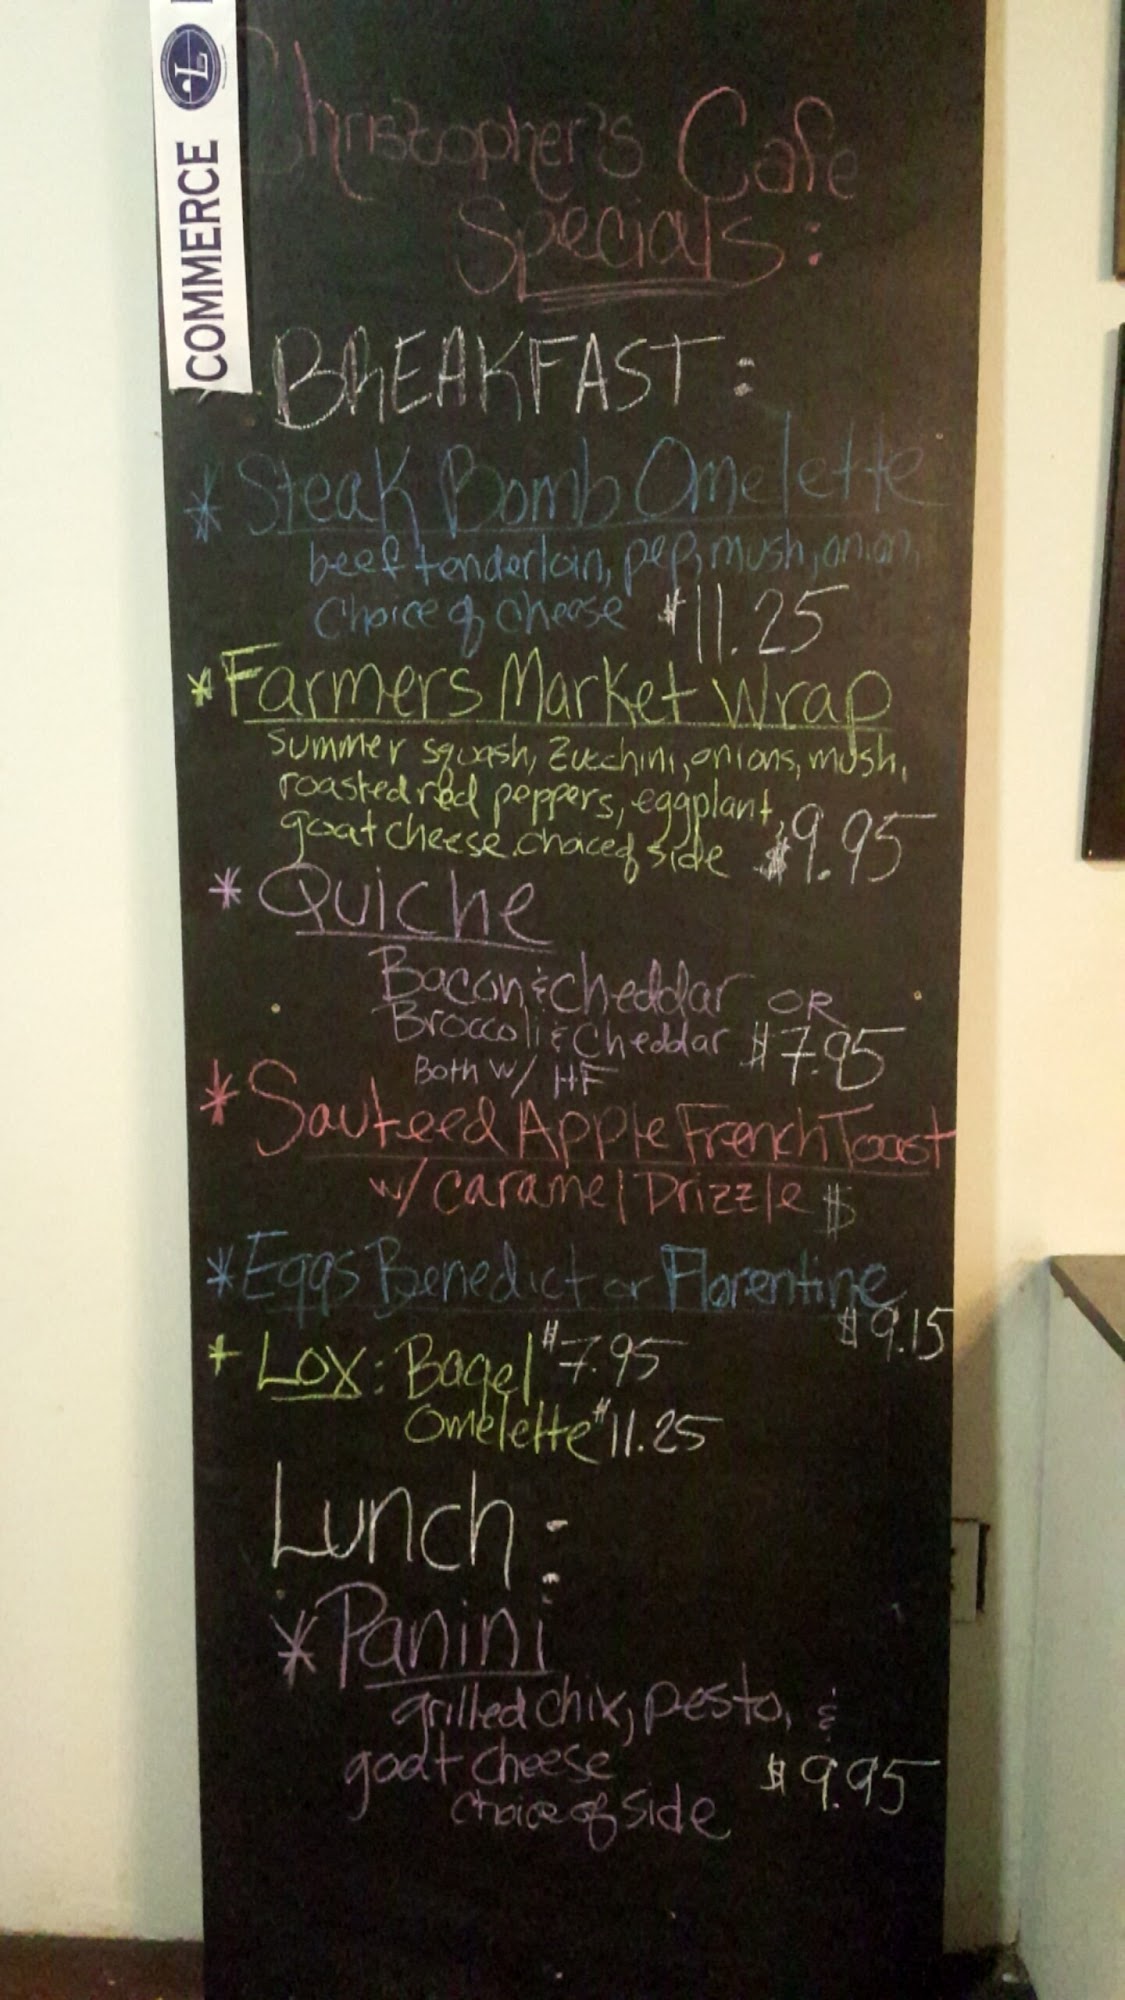 COMMERCE
L
Christopher's Cafe
Specials:
BREAKFAST:
* Steak Bomb Omelette
beef tenderloin, pep, mush, onion,
choice of cheese $11.25
* Farmers Market Wrap
summer squash, zucchini, onions, mush,
roasted red peppers, eggplant,
goat cheese. choice of side $9.95
* Quiche
Bacon & cheddar OR
Broccoli & Cheddar $7.95
Both w/ HF
* Sauteed Apple French Toast
w/ caramel Drizzle $
* Eggs Benedict or Florentine
$9.15
* Lox: Bagel $7.95
Omelette $11.25
Lunch:
* Panini
grilled chix, pesto, &
goat cheese $9.95
choice of side